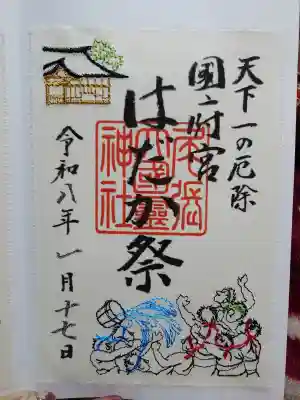 天下一の厄除
国府宮
はだか祭
尾張
大國霊
神社
令和八年一月十七日